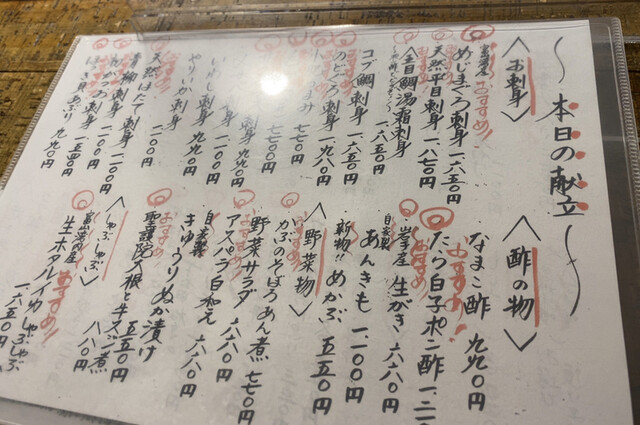 〜本日の献立〜
〈お刺身〉
富浦産 おすすめ!
めじまぐろ刺身 一.六五〇円
おすすめ!
天然平目刺身 一.八七〇円
金目鯛湯霜刺身
コブ鯛刺身 一.六五〇円
おすすめ!
のどぐろ刺身 一.九八〇円
刺身 九九〇円
いわし刺身
やりいか刺身 九九〇円
おすすめ!
天然ほたて 一.一〇〇円
刺身 一.一〇〇円
九九〇円
〈酢の物〉
なまこ酢 九九〇円
おすすめ!
たら白子ポン酢 一.二
おすすめ!
岩手産 生がき 六六〇円
自家製 あんきも 一.一〇〇円
新物!! めかぶ 五五〇円
〈野菜物〉
かぶのそぼろあん煮 七七〇円
野菜サラダ 六六〇円
アスパラ白和え 六六〇円
自家製 きゅうりぬか漬け
おすすめ!
聖護院大根と牛スジ煮 八八〇円
〈しゃぶしゃぶ〉
富山湾産 おすすめ!
生ホタルイカしゃぶしゃぶ 一.六五〇円